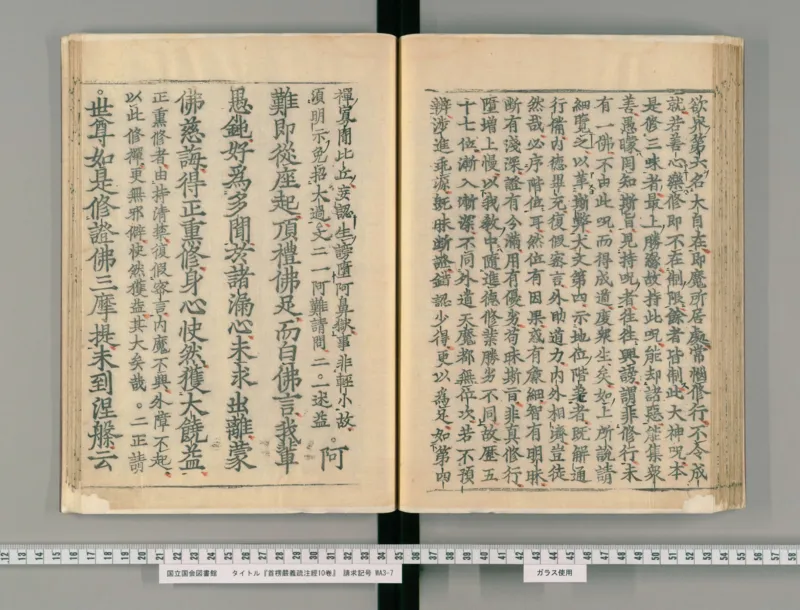 欲界第六名大自在即魔所居處常惱修行不令成
就若善心樂修即不在制限餘者皆制此大神呪本
是修三昧者最上勝緣故持此呪能却諸惡催集衆
善愚矇罔知斯旨見持呪者往往興謗謂非修行未
有一佛不由此呪而得成道度衆生矣如上所說請
細覽之以革斯弊大文第四示地位階差者既解通
行備內德畢充復假密言外助道力內外相濟豈徒
然哉必序階位耳然位有因果惑有麁細智有明昧
斷有淺深證有分滿用有優劣苟昧斯旨非真修行
墮增上慢以我教中隨進德修業勝劣不同故歷五
十七位漸入漸深不同外道天魔都無倫次若不預
辨涉進乖源既昧斷證錯認少得更以為足如第四
禪寡聞比丘妄認生謗墮阿鼻獄事非輕小故
須明示免招大過文二一阿難請問二。一述益
阿
難即從座起頂禮佛足而白佛言我輩
愚鈍好爲多聞於諸漏心未求出離蒙
佛慈誨得正熏修身心快然獲大饒益
正熏修者由持清禁復假密言內魔不興外障不起
以此修禪更無邪僻快然獲益其大矣哉。二正請
世尊如是修證佛三摩提未到涅槃云
国立国会図書館 タイトル『首楞嚴義疏注經10巻』 請求記号 WA3-7
ガラス使用
12 13 14 15 16 17 18 19 20 21 22 23 24 25 26 27 28 29 30 31 32 33 34 35 36 37 38 39 40 41 42 43 44 45 46 47 48 49 50 51 52 53 54 55 56 57 58